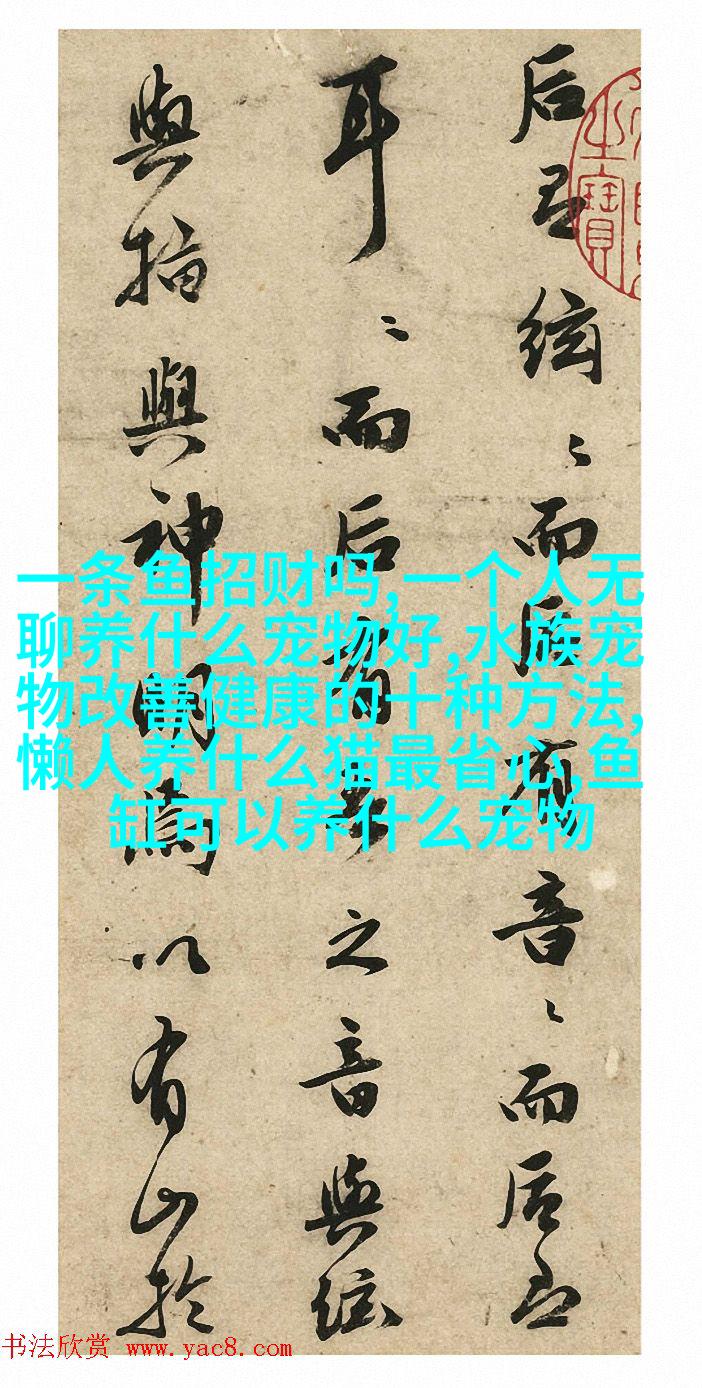 后有弦〻而后有音〻而后即
耳〻而后有琴之音與弦
與指與神明焉以有此於
之寶
一条鱼招财吗,一个人无
聊养什么宠物好,水族宠
物改善健康的十种方法,
懒人养什么猫最省心,鱼
缸可以养什么宠物
书法欣赏 www.yac8.com